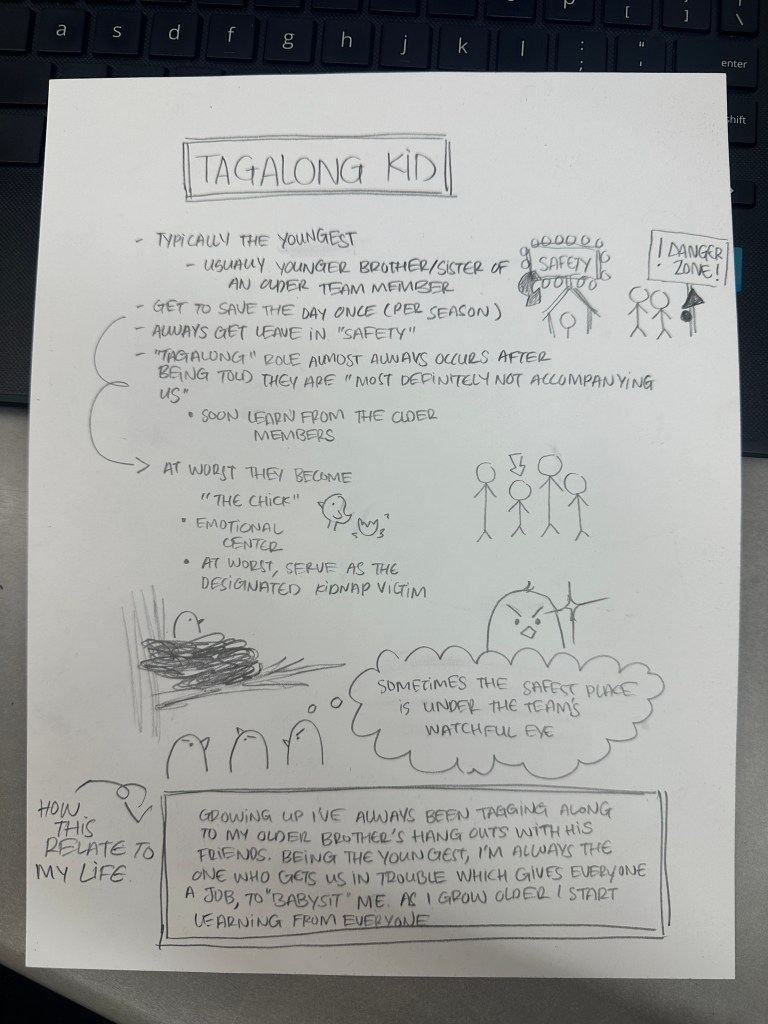 p
[
]
\
a s d f g h j k l ; : ' "
enter
shift
TAGALONG KID
- TYPICALLY THE YOUNGEST
- USUALLY YOUNGER BROTHER/SISTER OF
AN OLDER TEAM MEMBER
- GET TO SAVE THE DAY ONCE (PER SEASON)
- ALWAYS GET LEAVE IN "SAFETY"
- "TAGALONG" ROLE ALMOST ALWAYS OCCURS AFTER
BEING TOLD THEY ARE "MOST DEFINITELY NOT ACCOMPANYING
US"
• SOON LEARN FROM THE OLDER
MEMBERS
SAFETY
! DANGER
ZONE!
AT WORST THEY BECOME
"THE CHICK"
• EMOTIONAL
CENTER
• AT WORST, SERVE AS THE
DESIGNATED KIDNAP VICTIM
SOMETIMES THE SAFEST PLACE
IS UNDER THE TEAM'S
WATCHFUL EYE
HOW
THIS
RELATE TO
MY LIFE.
GROWING UP I'VE ALWAYS BEEN TAGGING ALONG
TO MY OLDER BROTHER'S HANG OUTS WITH HIS
FRIENDS. BEING THE YOUNGEST, I'M ALWAYS THE
ONE WHO GETS US IN TROUBLE WHICH GIVES EVERYONE
A JOB, TO "BABYSIT" ME. AS I GROW OLDER I START
LEARNING FROM EVERYONE